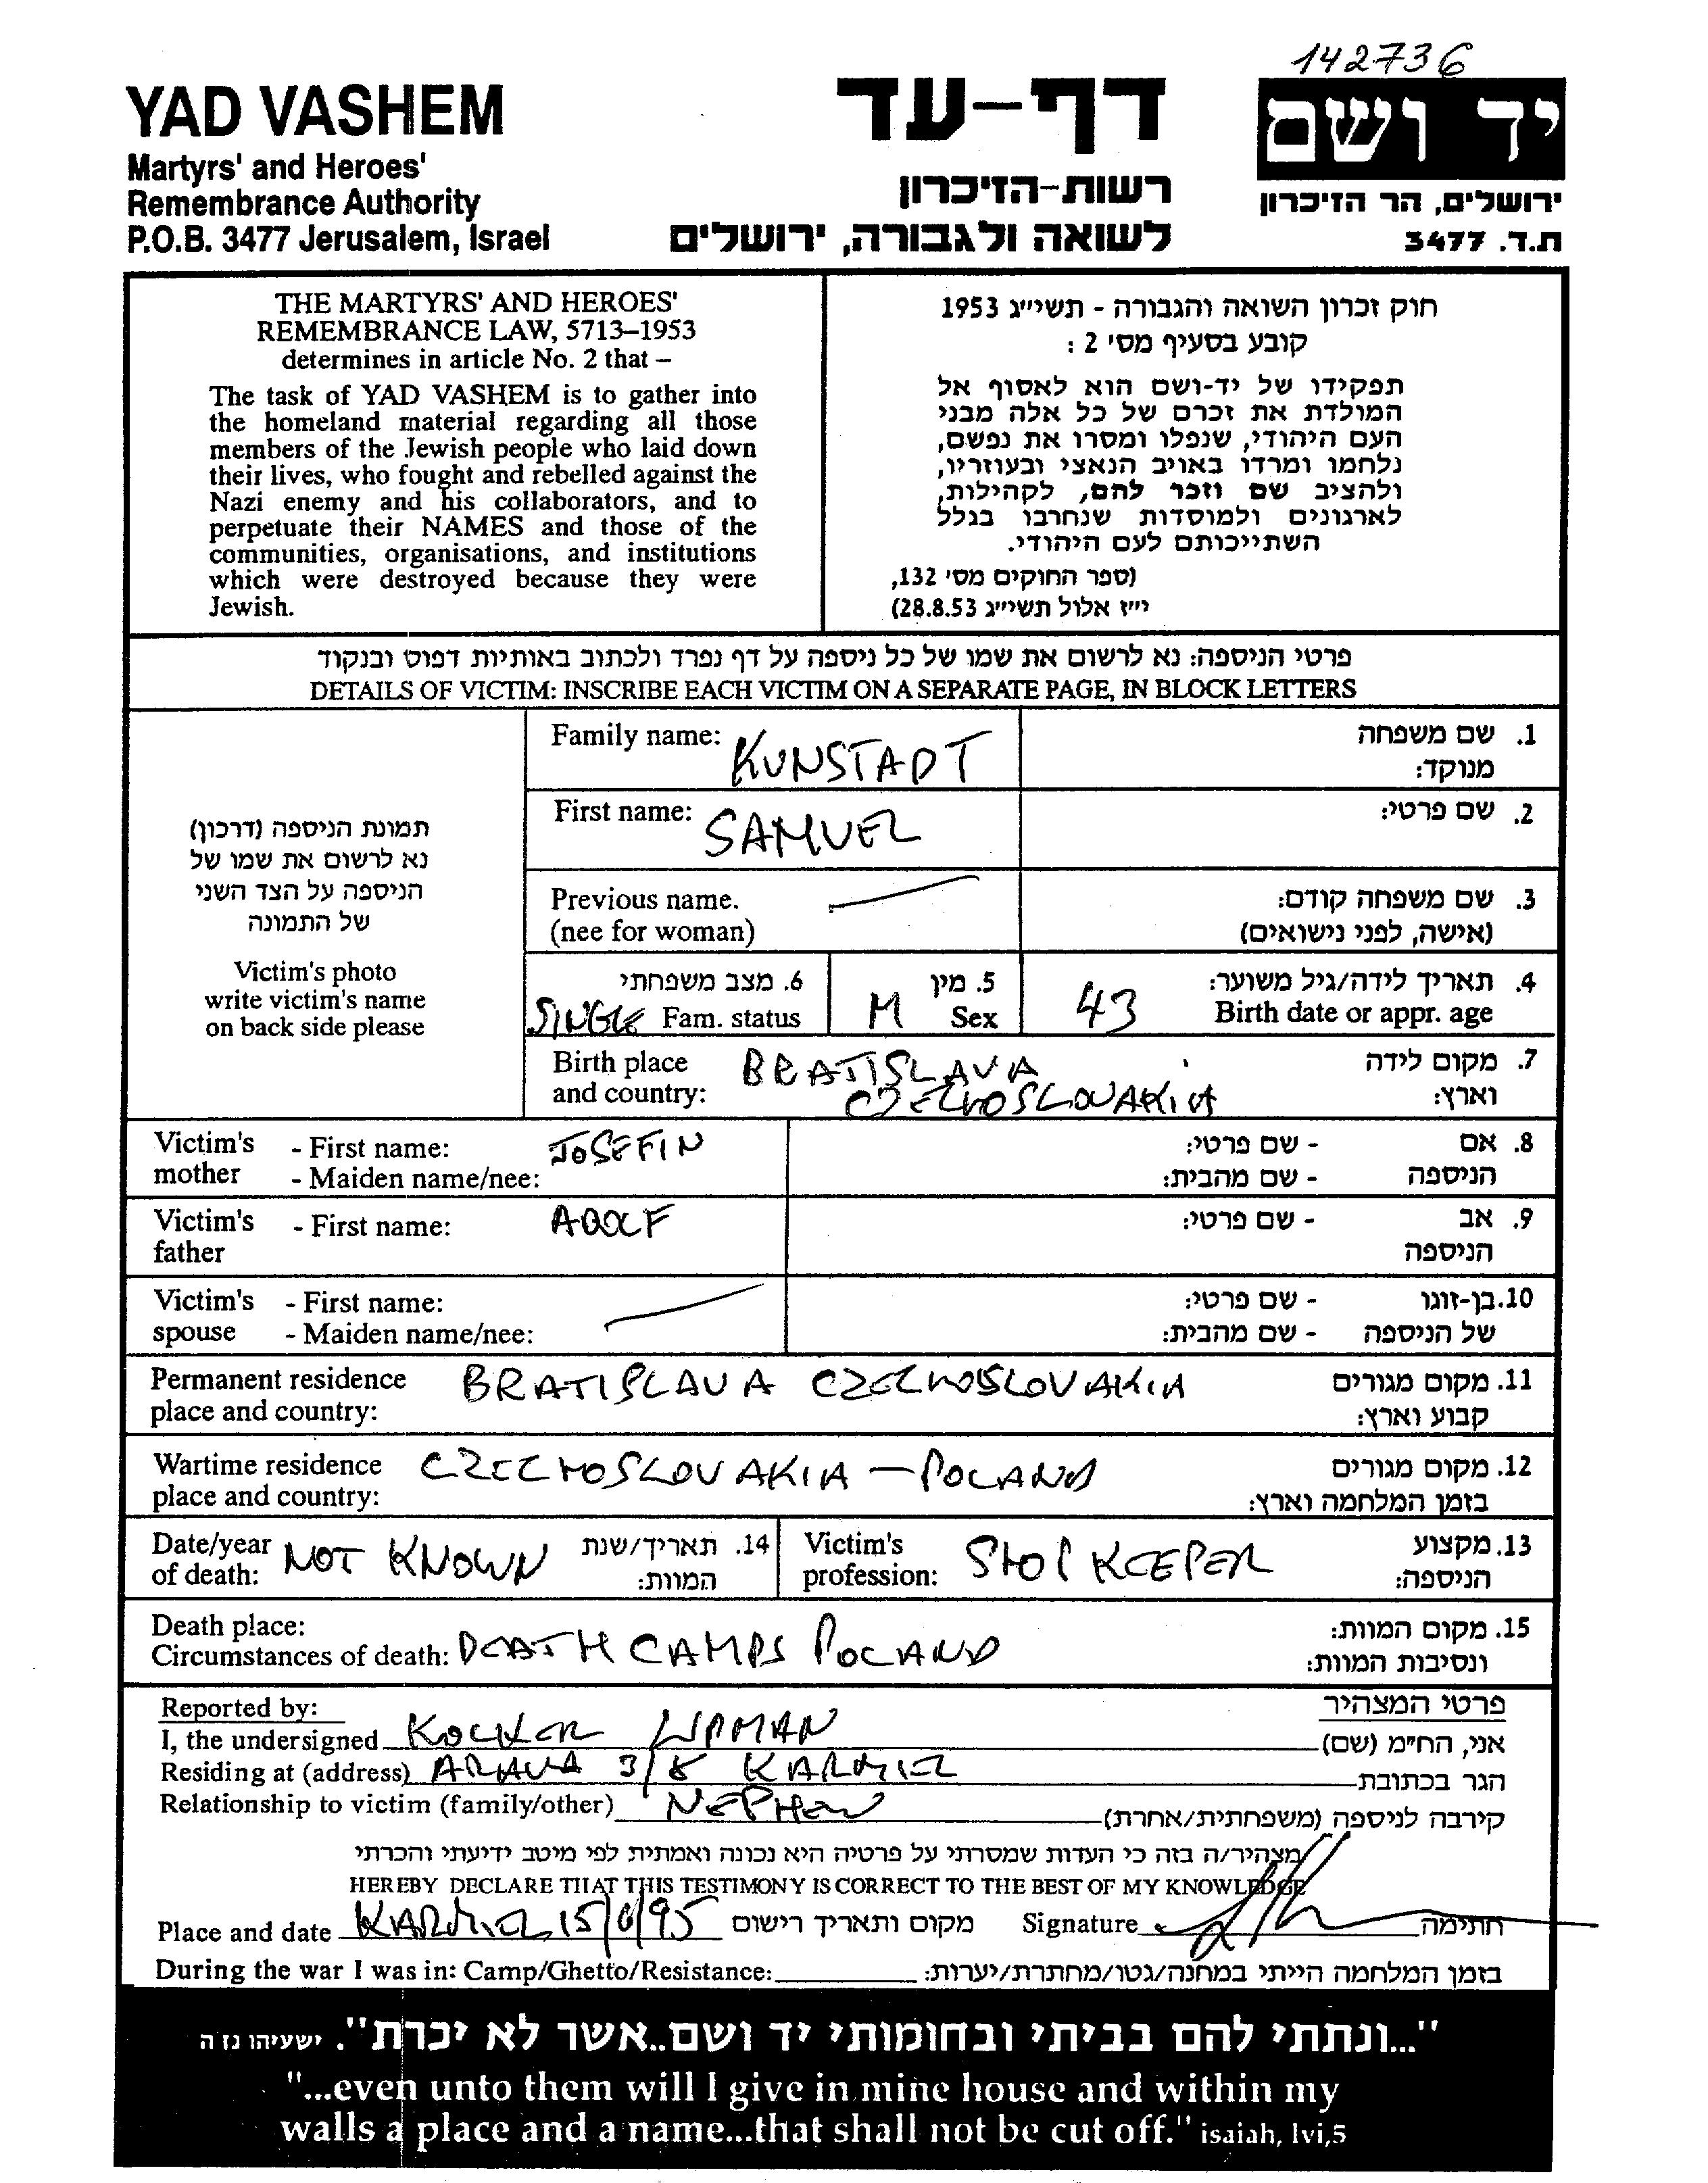 142736
YAD VASHEM
Martyrs' and Heroes'
Remembrance Authority
P.O.B. 3477 Jerusalem, Israel
דף-עד
רשות-הזיכרון
לשואה ולגבורה, ירושלים
יד ושם
ירושלים, הר הזיכרון
ת.ד. 3477
THE MARTYRS' AND HEROES'
REMEMBRANCE LAW, 5713–1953
determines in article No. 2 that –
The task of YAD VASHEM is to gather into
the homeland material regarding all those
members of the Jewish people who laid down
their lives, who fought and rebelled against the
Nazi enemy and his collaborators, and to
perpetuate their NAMES and those of the
communities, organisations, and institutions
which were destroyed because they were
Jewish.
חוק זכרון השואה והגבורה - תשי״ג 1953
קובע בסעיף מס׳ 2 :
תפקידו של יד-ושם הוא לאסוף אל
המולדת את זכרם של כל אלה מבני
העם היהודי, שנפלו ומסרו את נפשם,
נלחמו ומרדו באויב הנאצי ובעוזריו,
ולהציב שם וזכר להם, לקהילות,
לארגונים ולמוסדות שנחרבו בגלל
השתייכותם לעם היהודי.
(ספר החוקים מס׳ 132,
י״ז אלול תשי״ג 28.8.53)
פרטי הניספה: נא לרשום את שמו של כל ניספה על דף נפרד ולכתוב באותיות דפוס ובנקוד
DETAILS OF VICTIM: INSCRIBE EACH VICTIM ON A SEPARATE PAGE, IN BLOCK LETTERS
תמונת הניספה (דרכון)
נא לרשום את שמו של
הניספה על הצד השני
של התמונה
Victim's photo
write victim's name
on back side please
Family name: KUNSTADT 1. שם משפחה
מנוקד:
First name: SAMUEL 2. שם פרטי:
Previous name. 3. שם משפחה קודם:
(nee for woman) (אישה, לפני נישואים)
6. מצב משפחתי 5. מין 4. תאריך לידה/גיל משוער:
SINGLE Fam. status M Sex 43 Birth date or appr. age
Birth place BRATISLAVA 7. מקום לידה
and country: CZECHOSLOVAKIA וארץ:
Victim's - First name: JOSEFIN - שם פרטי: 8. אם
mother - Maiden name/nee: - שם מהבית: הניספה
Victim's - First name: ADOLF - שם פרטי: 9. אב
father הניספה
Victim's - First name: - שם פרטי: 10. בן-זוגו
spouse - Maiden name/nee: - שם מהבית: של הניספה
Permanent residence BRATISLAVA CZECHOSLOVAKIA 11. מקום מגורים
place and country: קבוע וארץ:
Wartime residence CZECHOSLOVAKIA – POLAND 12. מקום מגורים
place and country: בזמן המלחמה וארץ:
Date/year NOT KNOWN 14. תאריך/שנת Victim's SHOP KEEPER 13. מקצוע
of death: המוות: profession: הניספה:
Death place: 15. מקום המוות:
Circumstances of death: DEATH CAMPS POLAND ונסיבות המוות:
Reported by: פרטי המצהיר
I, the undersigned KOCHER LIPMAN אני, הח״מ (שם)
Residing at (address) ARAVA 3/8 KARMIEL הגר בכתובת
Relationship to victim (family/other) NEPHEW קירבה לניספה (משפחתית/אחרת)
מצהיר/ה בזה כי העדות שמסרתי על פרטיה היא נכונה ואמתית לפי מיטב ידיעתי והכרתי
HEREBY DECLARE THAT THIS TESTIMONY IS CORRECT TO THE BEST OF MY KNOWLEDGE
Place and date KARMIEL 15/6/95 מקום ותאריך רישום Signature חתימה
During the war I was in: Camp/Ghetto/Resistance: בזמן המלחמה הייתי במחנה/גטו/מחתרת/יערות:
"...ונתתי להם בביתי ובחומותי יד ושם..אשר לא יכרת". ישעיהו נז ה
"...even unto them will I give in mine house and within my
walls a place and a name...that shall not be cut off." isaiah, lvi,5